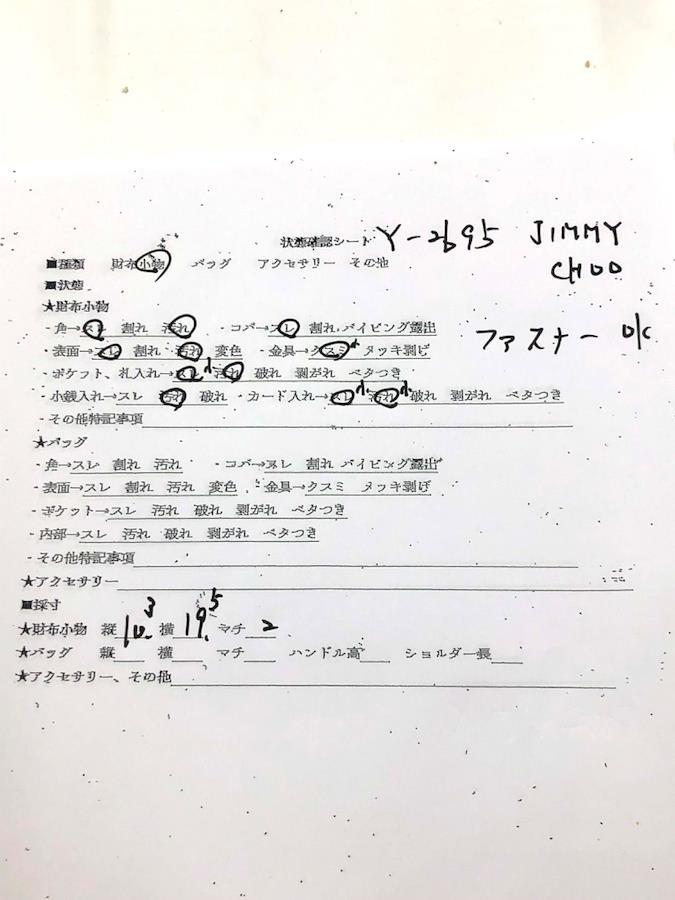 状態確認シート Y-2695 JIMMY CHOO
■種類 財布小物 バッグ アクセサリー その他
■状態
★財布小物
・角→スレ 割れ 汚れ ・コバ→スレ 割れ パイピング露出
ファスナー OK
・表面→スレ 割れ 汚れ 変色 ・金具→クスミ メッキ剥げ
・ポケット、札入れ→スレ 汚れ 破れ 剥がれ ベタつき
・小銭入れ→スレ 汚れ 破れ ・カード入れ→スレ 汚れ 破れ 剥がれ ベタつき
・その他特記事項
★バッグ
・角→スレ 割れ 汚れ ・コバ→スレ 割れ パイピング露出
・表面→スレ 割れ 汚れ 変色 金具→クスミ メッキ剥げ
・ポケット→スレ 汚れ 破れ 剥がれ ベタつき
・内部→スレ 汚れ 破れ 剥がれ ベタつき
・その他特記事項
★アクセサリー
■採寸
★財布小物 縦10.3 横19.5 マチ2
★バッグ 縦 横 マチ ハンドル高 ショルダー長
★アクセサリー、その他